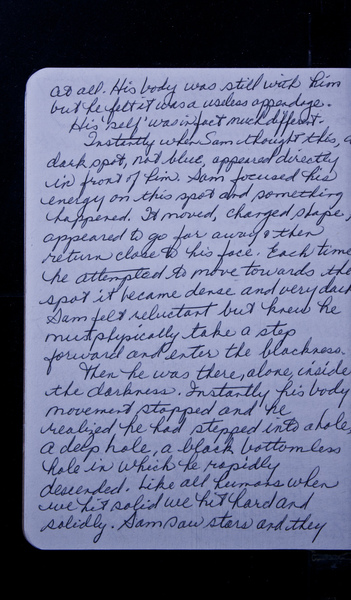 at all. His body was still with him
but he felt it was a useless appendage.
His 'self' was in fact much different.
Instantly when Sam thought this, a
dark spot, not blue, appeared directly
in front of him. Sam focused his
energy on this spot and something
happened. It moved, changed shape,
appeared to go far away & then
return close to his face. Each time
he attempted to move towards the
spot it became dense and very dark
Sam felt reluctant but knew he
must physically take a step
forward and enter the blackness.
Then he was there, alone, inside
the darkness. Instantly his body
movement stopped and he
realized he had stepped into a hole,
a deep hole, a black bottomless
hole in which he rapidly
descended. Like all humans when
we hit solid we hit hard and
solidly. Sam saw stars and they